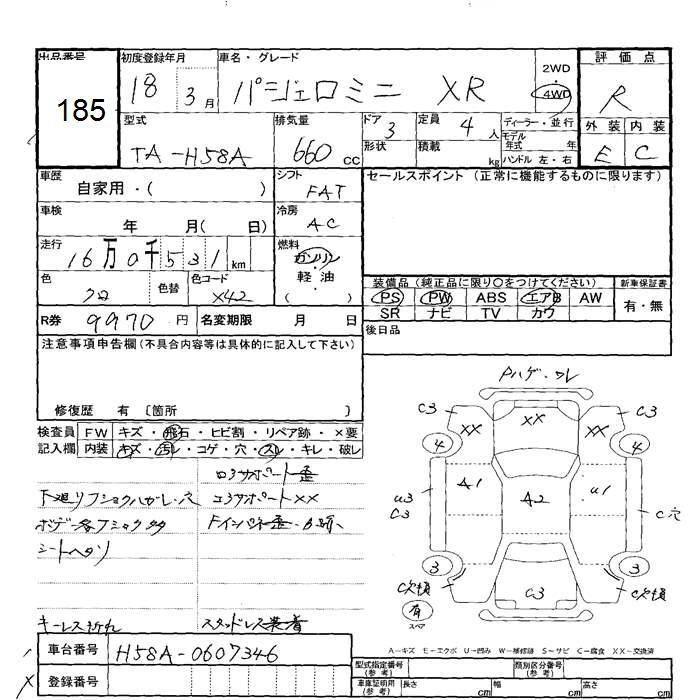 出品番号 初度登録年月 車名・グレード 2WD 評価点
185 18 3月 パジェロミニ XR 4WD R
型式 排気量 ドア 3 定員 4人 ディーラー・並行 外装 内装
TA-H58A 660cc 形状 積載 kg モデル年式 年 E C
ハンドル 左・右
車歴 自家用・( ) シフト FAT セールスポイント (正常に機能するものに限ります)
車検 年 月( 日) 冷房 AC
走行 16万0千531km 燃料 ガソリン・軽油 ( )
色 クロ 色替 色コード X42
装備品 (純正品に限り○をつけてください) 新車保証書
PS PW ABS エアB AW 有・無
SR ナビ TV カワ
R券 9970円 名変期限 月 日 後日品
注意事項申告欄(不具合内容等は具体的に記入して下さい)
修復歴 有 〔箇所 〕
検査員 FW キズ・飛石・ヒビ割・リペア跡・×要
記入欄 内装 キズ・汚レ・コゲ・穴・スレ・キレ・破レ
ロ3サポート歪
下廻リフショクハガレ・穴 コ3サポートXX
ボデー各フショク多
シートヘタリ
キーレス折れ スタッドレス装着
Pハゲ・ワレ
C3 XX XX XX C3
4 4
U3 C3 A1 A2 U1 C穴
3 3
C穴損 C3 C穴損
有 スペア
A-キズ E-エクボ U-凹み W-補修跡 S-サビ C-腐食 XX-交換済
車台番号 H58A-0607346
登録番号
型式指定番号(参考) 類別区分番号(参考)
車庫証明用(参考) 長さ cm 幅 cm 高さ cm